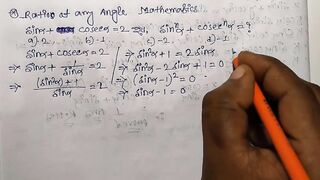 Ratio at any Angle Mathematics
sinα + cosecα = 2 হয়, sinⁿα + cosecⁿα = ?
a) 2, b) -1 c) -2, d) -1
sinα + cosecα = 2
⇒ sinα + 1/sinα = 2
⇒ (sin²α) + 1/sinα = 2
⇒ sin²α + 1 = 2 sinα
⇒ sin²α - 2 sinα + 1 = 0
⇒ (sinα - 1)² = 0
⇒ sinα - 1 = 0